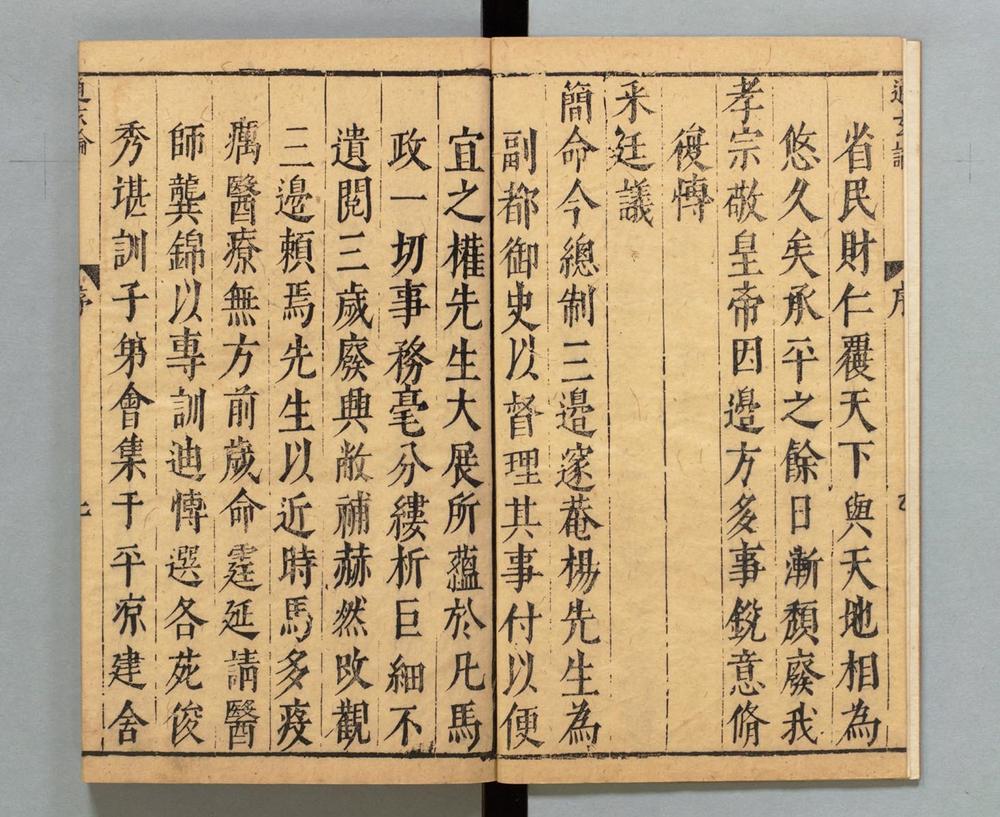 通玄論
序
省民財仁覆天下與天地相為
悠久矣承平之餘日漸頹廢我
孝宗敬皇帝因邊方多事銳意脩
復慱
采廷議
簡命今總制三邊邃菴楊先生為
副都御史以督理其事付以便
宜之權先生大展所蘊於凡馬
政一切事務毫分縷析巨細不
遺閱三歲廢興敝補赫然改觀
三邊賴焉先生以近時馬多疫
癘醫療無方前歲命霆延請醫
師龔錦以專訓迪慱選各苑俊
秀堪訓子弟會集于平凉建舍
通玄論
序